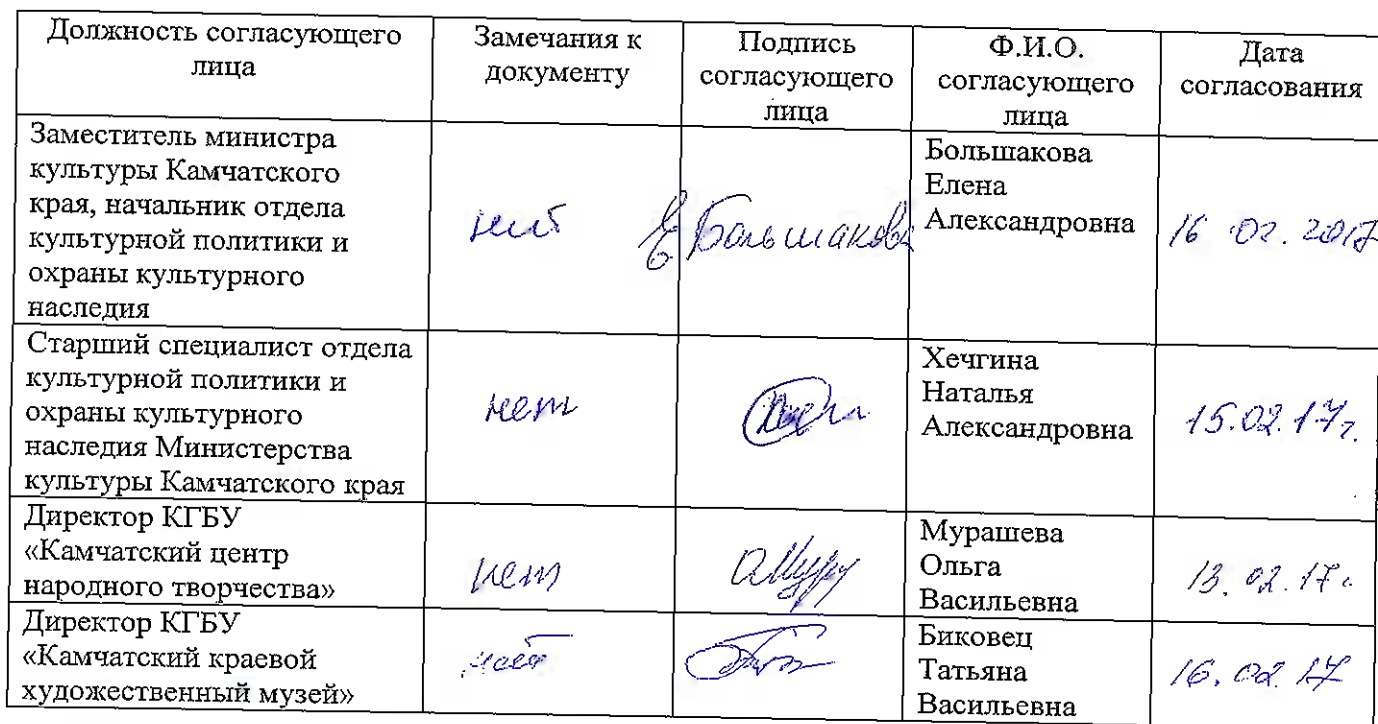 Должность согласующего
лица
Замечания к
документу
Подпись
согласующего
лица
Ф.И.О.
согласующего
лица
Дата
согласования
Заместитель министра
культуры Камчатского
края, начальник отдела
культурной политики и
охраны культурного
наследия
нет
Большакова
Большакова
Елена
Александровна
16 02. 2017
Старший специалист отдела
культурной политики и
охраны культурного
наследия Министерства
культуры Камчатского края
нет
Хечгина
Наталья
Александровна
15.02.17г.
Директор КГБУ
«Камчатский центр
народного творчества»
нет
Мурашева
Ольга
Васильевна
13.02.17г.
Директор КГБУ
«Камчатский краевой
художественный музей»
нет
Биковец
Татьяна
Васильевна
16.02.17